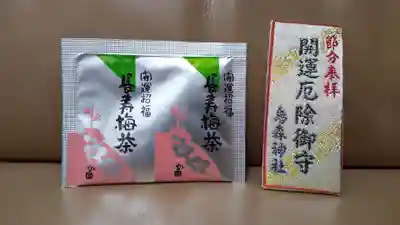 開運招福
長寿梅茶
開運招福
長寿梅茶
節分参拝
開運厄除御守
烏森神社